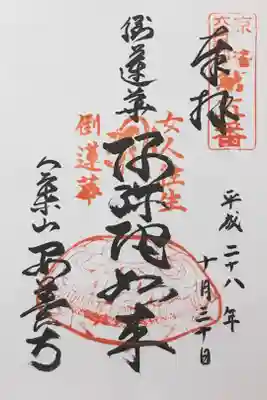 奉拝
平成二十八年
十月三十日
倒蓮華
阿弥陀如来
女人往生
倒蓮華
八葉山 安養寺